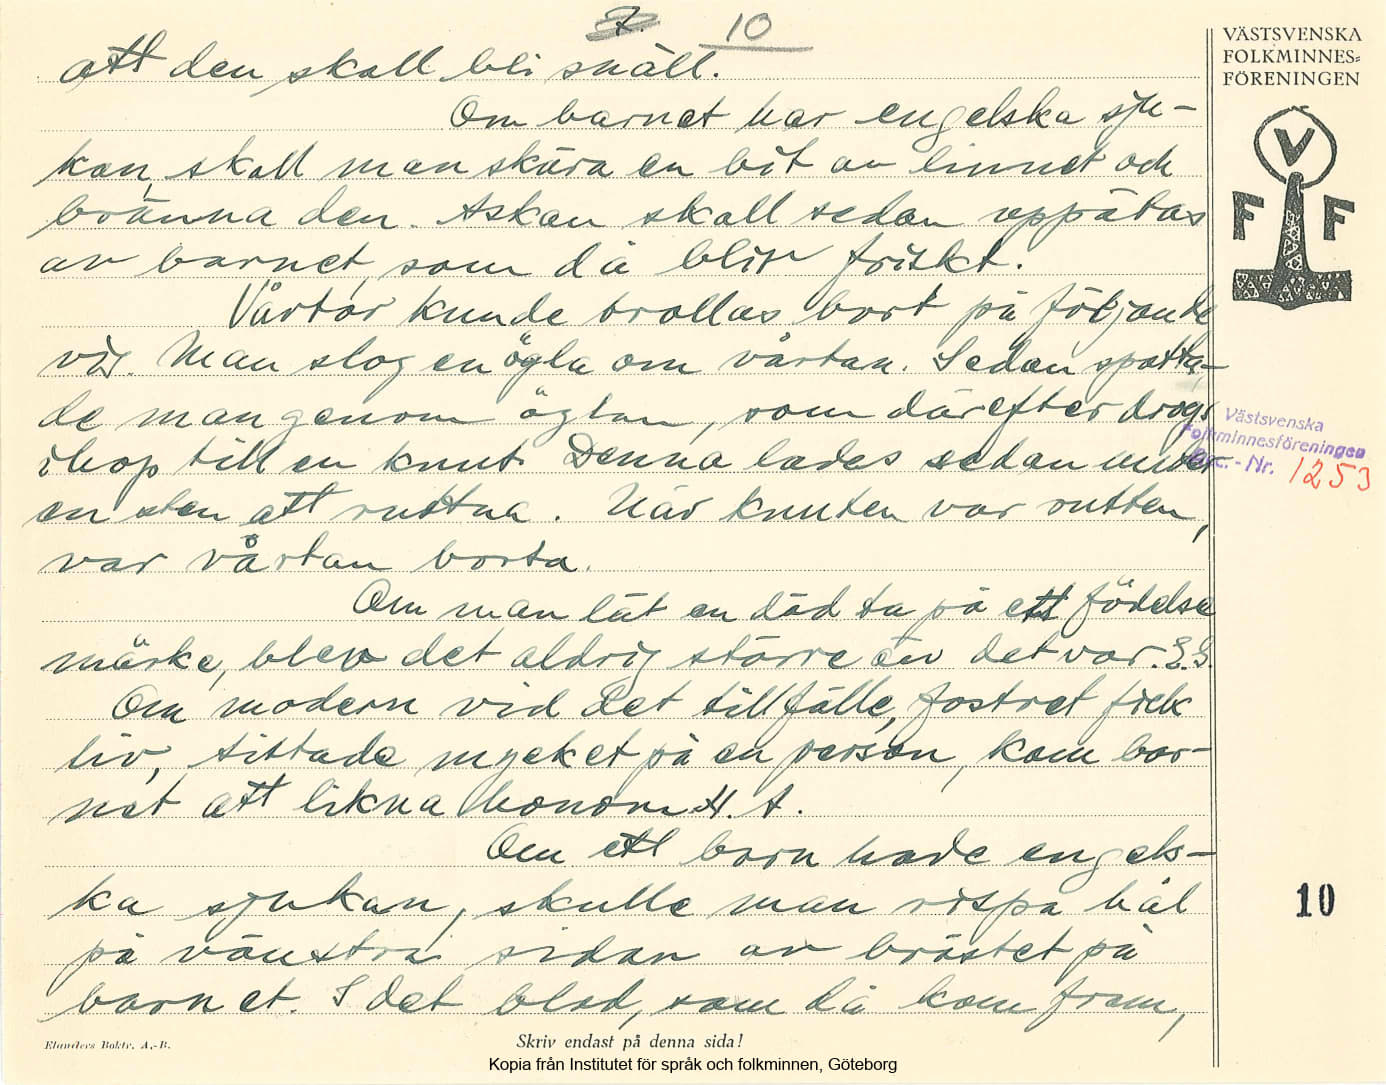 10
att den skall bli snäll.
Om barnet har engelska sju-
kan, skall man skära en bit av linnet och
bränna den. Askan skall sedan uppätas
av barnet, som då bliv friskt.
Vårtor kunde trollas bort på följande
vis. Man slog en ögla om vårtan. Sedan spotta-
de man genom öglan, som därefter drogs
ihop till en knut. Denna lades sedan under
en sten att ruttna. När knuten var rutten,
var vårtan borta.
Om man lät en död ta på ett födelse
märke, blev det aldrig större än det var. E.G.
Om modern vid det tillfälle, fostret fick
liv, tittade mycket på en person, kom bar-
net att likna honom. H. A.
Om ett barn hade engels-
ka sjukan, skulle man rispa hål
på vänstra sidan av bröstet på
barnet. I det blod, som då kom fram,
VÄSTSVENSKA
FOLKMINNES=
FÖRENINGEN
V
F F
Västsvenska
Folkminnesföreningen
Acc. - Nr. 1253
10
Elanders Boktr. A.-B.
Skriv endast på denna sida!
Kopia från Institutet för språk och folkminnen, Göteborg